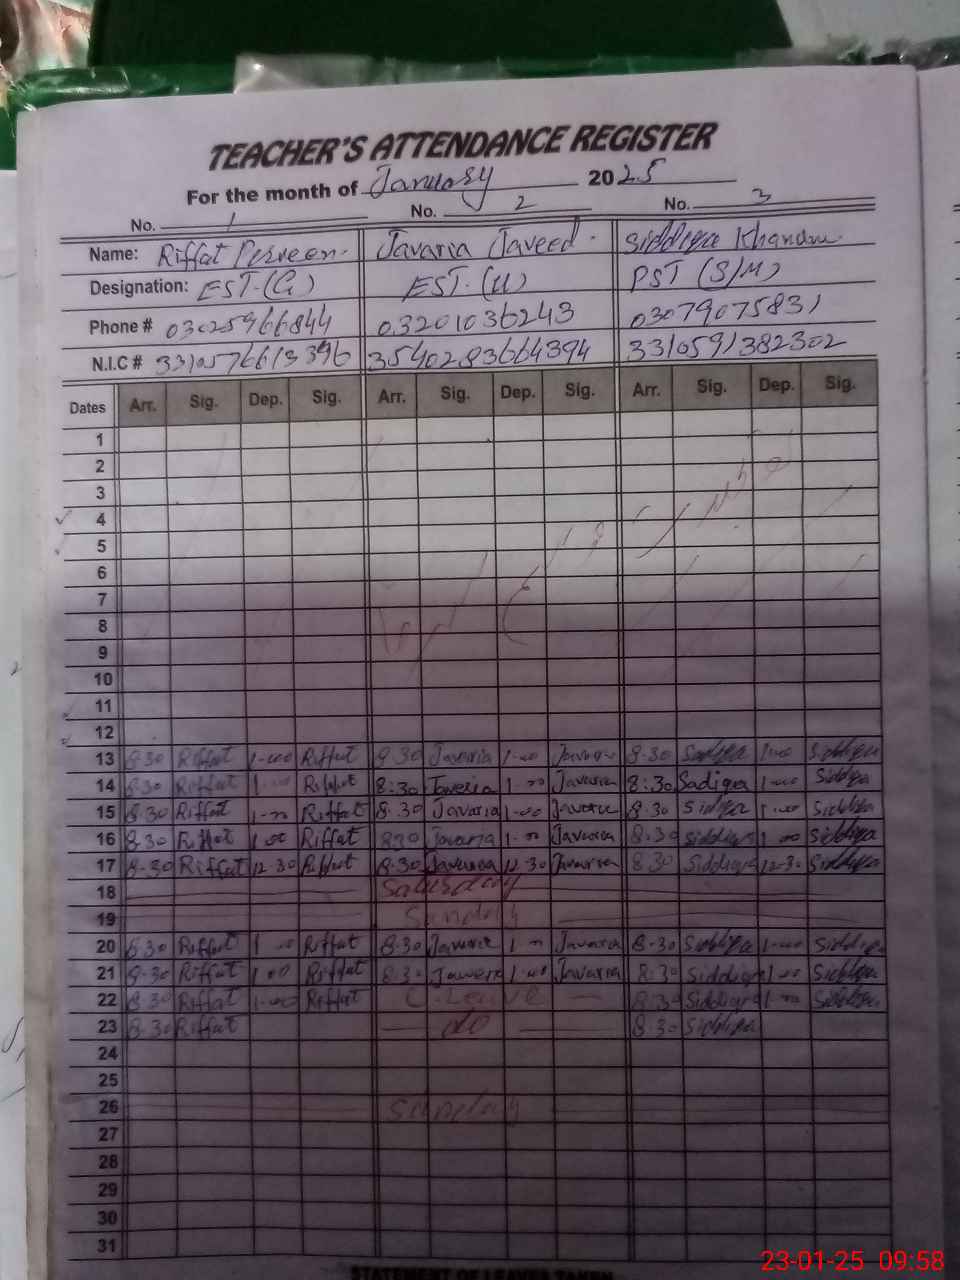 TEACHER'S ATTENDANCE REGISTER
For the month of January 2025
No. 1 No. 2 No. 3
Name: Riffat Perveen. Javaria Javeed. Siddiqa Khanam
Designation: EST.(G) EST.(U) PST (S/M)
Phone # 03025966844 03201036243 03079075831
N.I.C # 3310576613396 3540283664394 3310591382302
Dates Arr. Sig. Dep. Sig. Arr. Sig. Dep. Sig. Arr. Sig. Dep. Sig.
1
2
3
4
5
6
7
8
9
10
11
12
13 8.30 Riffat 1-00 Riffat 8.30 Javaria 1-00 Javaria 8-30 Sadiqa 1-00 Siddiqa
14 8.30 Riffat 1-00 Riffat 8:30 Javeria 1-00 Javaria 8:30 Sadiqa 1-00 Siddiqa
15 8.30 Riffat 1-00 Riffat 8.30 Javaria 1-00 Javaria 8-30 Sidiqa 1-00 Siddiqa
16 8.30 Riffat 1-00 Riffat 830 Javaria 1-00 Javaria 8:30 Siddiqa 1-00 Siddiqa
17 8-30 Riffat 12-30 Riffat 8.30 Javaria 12-30 Javaria 8.30 Siddiqa 12-30 Siddiqa
18 Saturday
19 Sunday
20 8.30 Riffat 1-00 Riffat 8.30 Javaria 1-00 Javaria 8-30 Siddiqa 1-00 Siddiqa
21 8-30 Riffat 1-00 Riffat 8:30 Javaria 1-00 Javaria 8:30 Siddiqa 1-00 Siddiqa
22 8.30 Riffat 1-00 Riffat C-Leave 8:30 Siddiqa 1-00 Siddiqa
23 8.30 Riffat do 8.30 Siddiqa
24
25
26 Sunday
27
28
29
30
31
STATEMENT OF LEAVES TAKEN
23-01-25 09:58